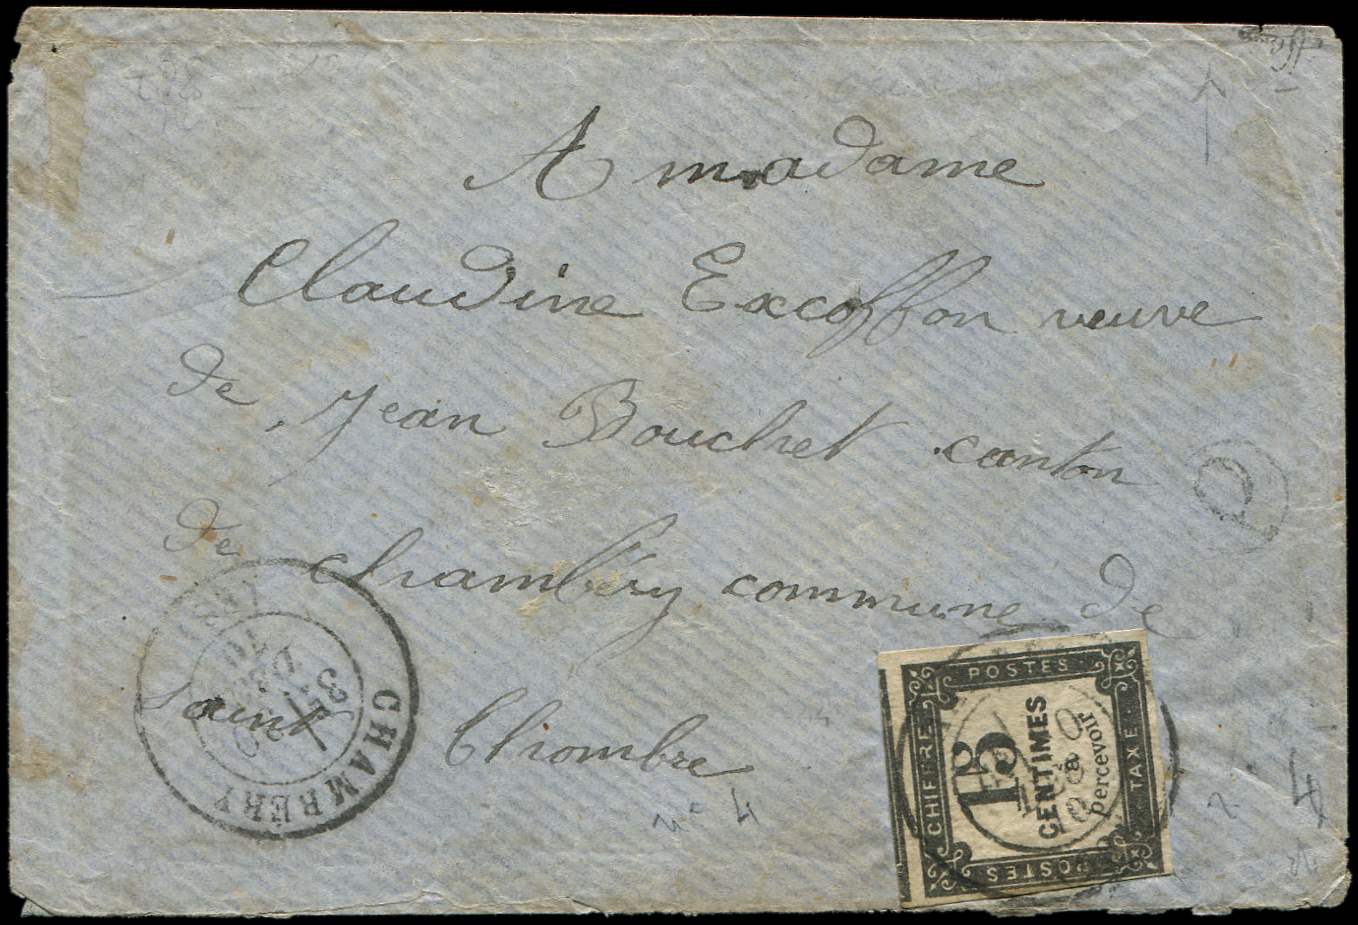 A madame
Claudine Excoffon veuve
de Jean Bouchet canton
de chambéry commune de
saint Thiombre
CHAMBERY
3E
POSTES
CHIFFRE
TAXE
POSTES
15
CENTIMES
à
percevoir
n° 4
4